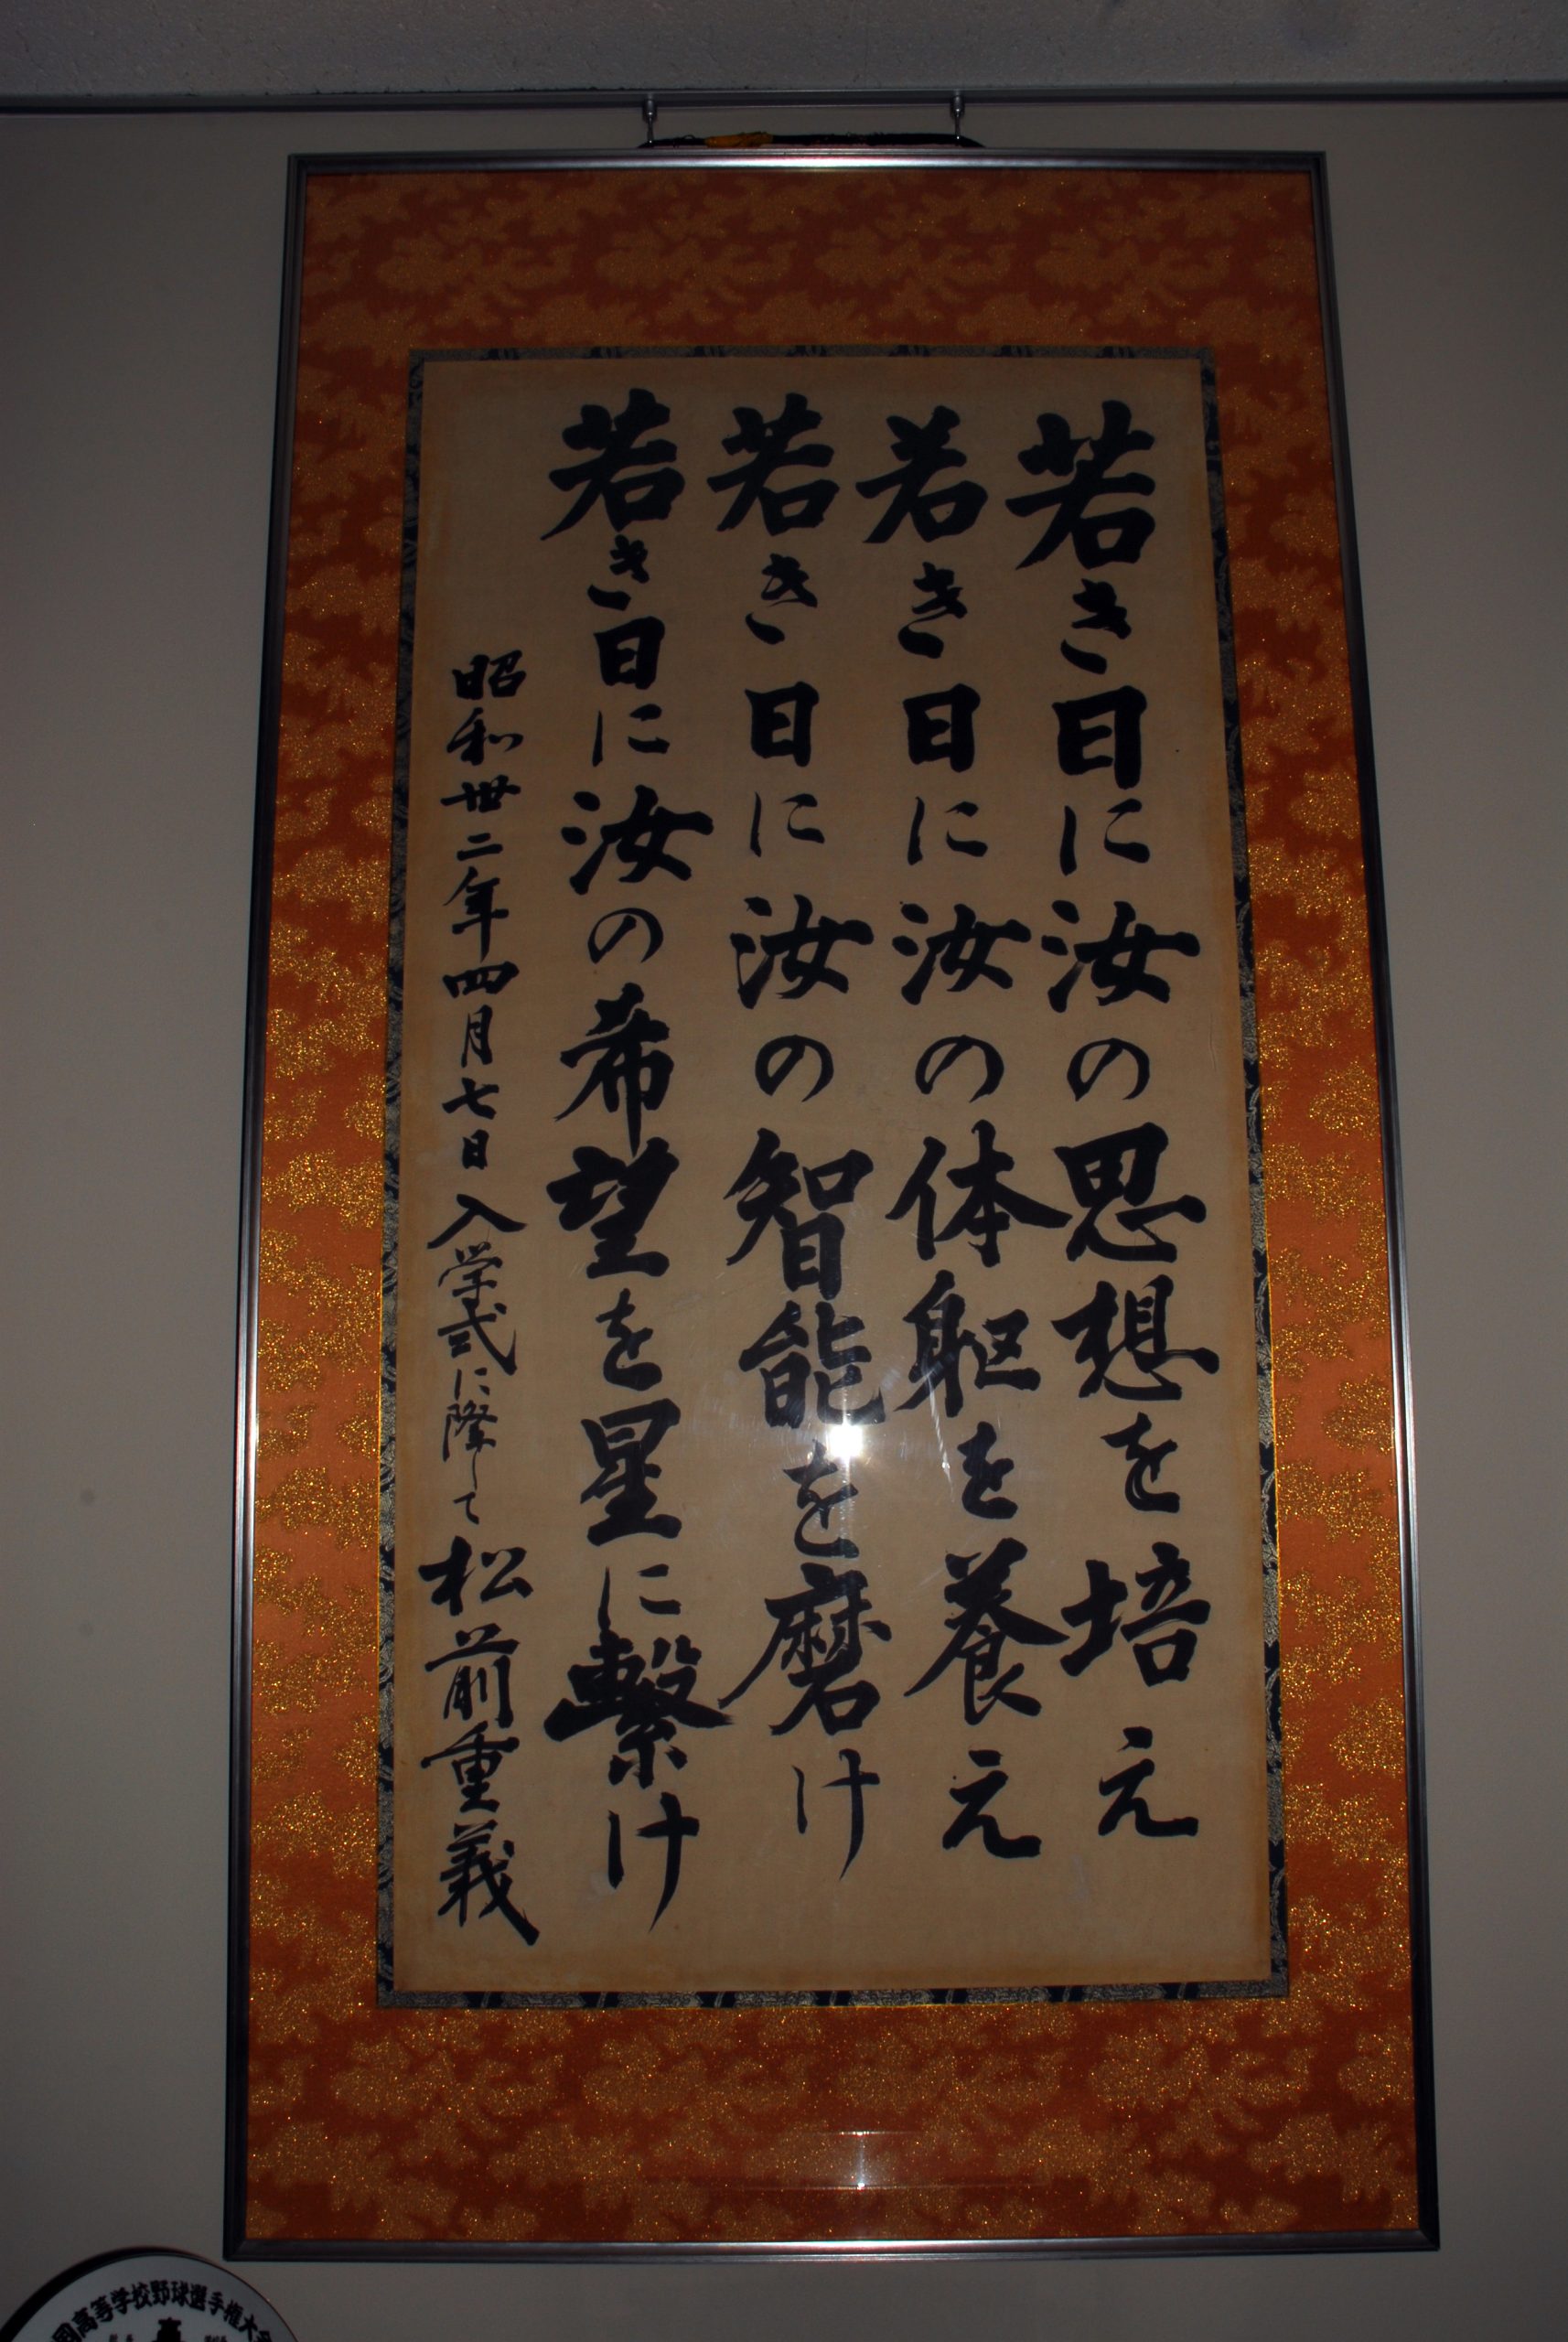 若き日に汝の思想を培え
若き日に汝の体躯を養え
若き日に汝の智能を磨け
若き日に汝の希望を星に繋け
昭和卅二年四月七日入学式に際して 松前重義
国高等学校野球選手権大